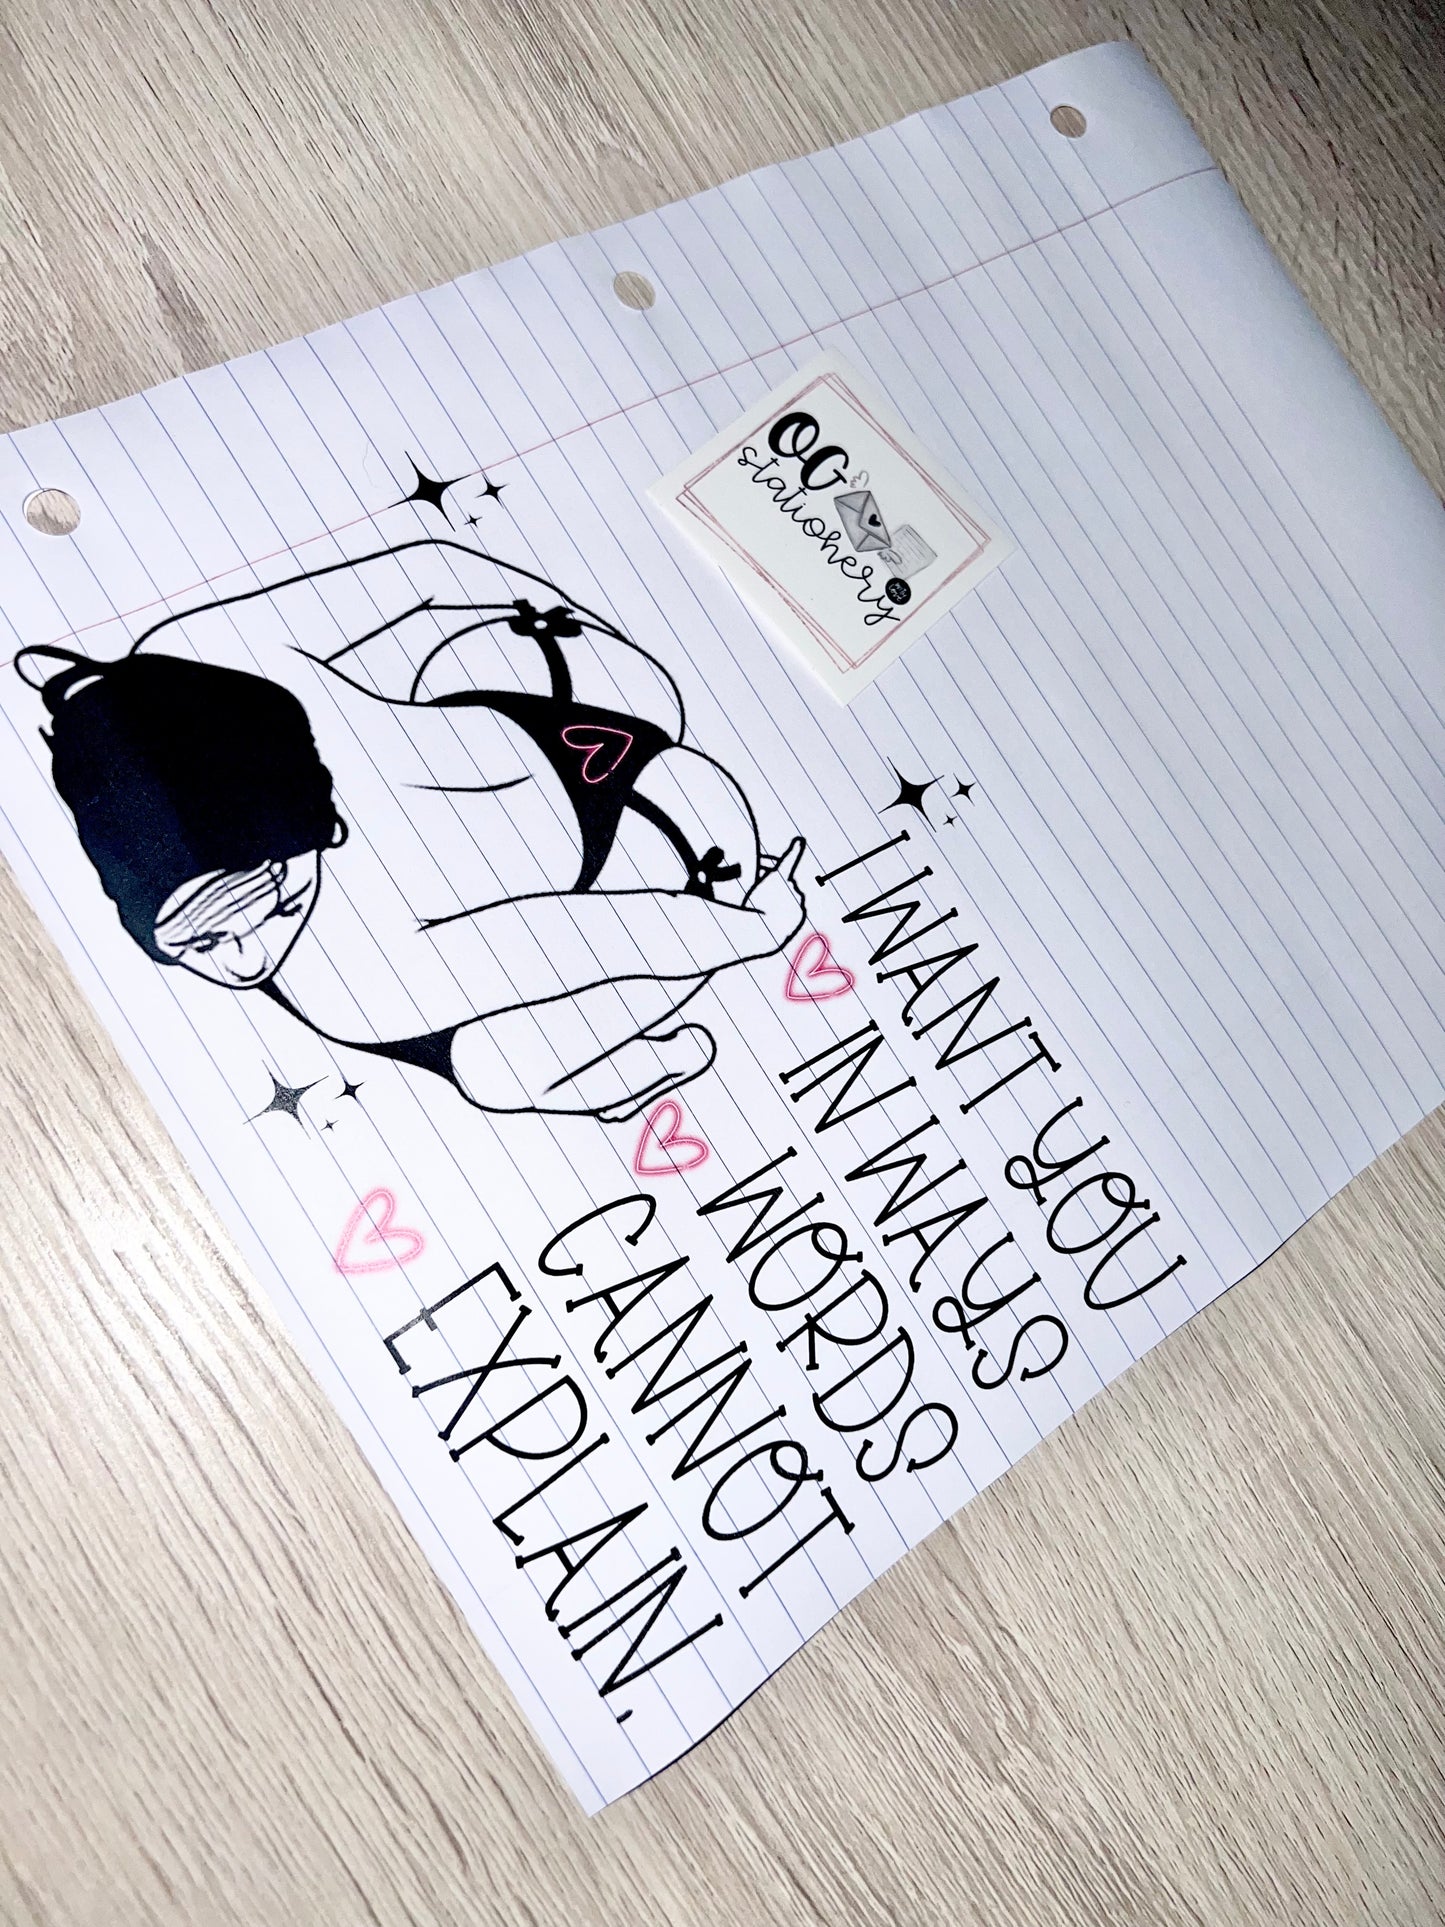 OG
stationery
I WANT YOU
IN WAYS
WORDS
CANNOT
EXPLAIN.